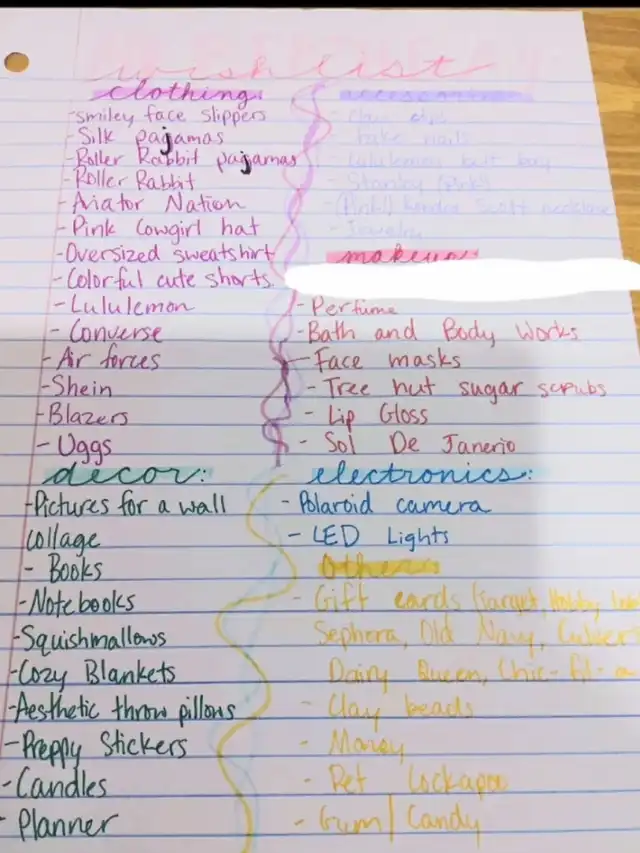 wish list
clothing:
-smiley face slippers
-Silk pajamas
-Roller Rabbit pajamas
-Roller Rabbit
-Aviator Nation
-Pink Cowgirl hat
-Oversized sweatshirt
-Colorful cute shorts
-Lululemon
-Converse
-Air forces
-Shein
-Blazers
-Uggs
- claw clips
- fake nails
- Lululemon belt bag
- Stanley (pink)
- (Pink!) Kendra Scott necklace
- Jewelry
makeup:
-Perfume
-Bath and Body Works
-Face masks
-Tree hut sugar scrubs
- Lip Gloss
- Sol De Janerio
decor:
-Pictures for a wall
collage
- Books
-Notebooks
-Squishmallows
-Cozy Blankets
-Aesthetic throw pillows
-Preppy Stickers
-Candles
- Planner
electronics:
- Polaroid camera
- LED Lights
Others
- Gift cards (Target, Hobby
Sephora, Old Navy,
Dairy Queen, Chic-fil-a
- Clay beads
- Money
- Pet Cockapoo
- Gum/Candy